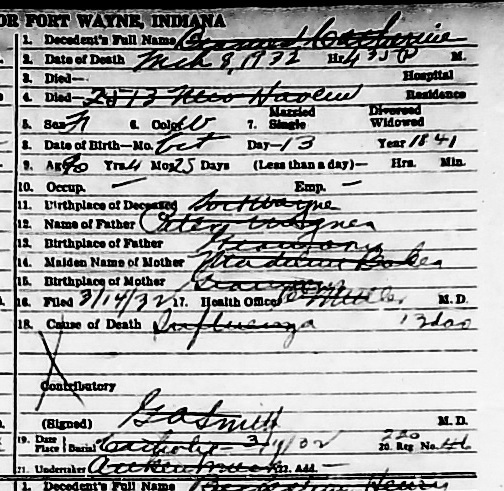 OR FORT WAYNE, INDIANA
1. Decedent's Full Name Catherine
2. Date of Death Mch 8, 1932 Hr. 4 35 P M.
3. Died— Hospital
4. Died— 2513 New Haven Residence
5. Sex F 6. Color W 7. Married Single Divorced Widowed
8. Date of Birth—Mo. Oct Day—13 Year 1841
9. Age 90 Yrs. 4 Mos. 25 Days (Less than a day)— Hrs. Min.
10. Occup. — Emp. —
11. Birthplace of Deceased Fort Wayne
12. Name of Father Peter Wagner
13. Birthplace of Father Germany
14. Maiden Name of Mother Madeline Baker
15. Birthplace of Mother Germany
16. Filed 3/14/32 17. Health Officer M. D.
18. Cause of Death Influenza 13 das
Contributory
(Signed) G A Smith M. D.
19. Date Place Burial Catholic 3/ /32 20. Reg No.
21. Undertaker 22. Add. —
1. Decedent's Full Name Henry